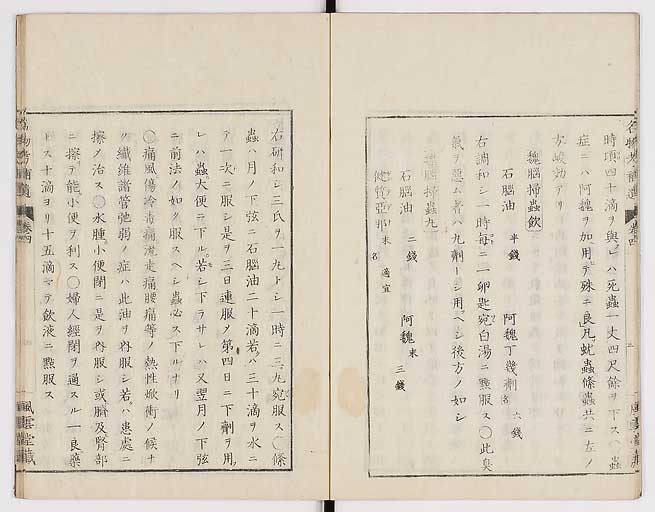 時項四十滴ヲ與ヒハ死蟲一丈四尺餘ヲ下ス〻蟲
症ニハ阿魏ヲ加用テ殊ニ良凡蚘蟲條蟲共ニ左ノ
方峻効アリ
魏腦掃蟲飲
石腦油 半錢 阿魏丁幾劑名 六錢
右調和シ一時毎ニ一卵匙宛白湯ニ點服ス〇此臭
氣ヲ惡ム者ハ丸劑トシ用ベシ後方ノ如シ
魏腦掃蟲丸
石腦油 二錢 阿魏末 三錢
健質亞那末名 適宜
右研和シ三氏ヲ一丸トシ一時ニ三丸宛服ス〇條
蟲ハ月ノ下弦ニ石腦油二十滴若ハ三十滴ヲ水ニ
テ一次ニ服シ是ヲ三日連服メ第四日ニ下劑ヲ用
レハ蟲大便ニ下ル若シ下ラサレハ又翌月ノ下弦
ニ前法ノ如ク服スヘシ蟲必ス下ルナリ
〇痛風傷冷毒痛流走痛腰痛等ノ熱性焮衝ノ候ナ
ク纖維諸管弛弱ノ症ハ此油ヲ內服シ若ハ患處ニ
擦ノ治ス〇水腫小便閉ニ是ヲ內服シ或臍及腎部
ニ擦テ能小便ヲ利ス〇婦人經閉ヲ通スル一良藥
トス十滴ヨリ十五滴マテ飲液ニ點服ス
卷四
風雲堂藏